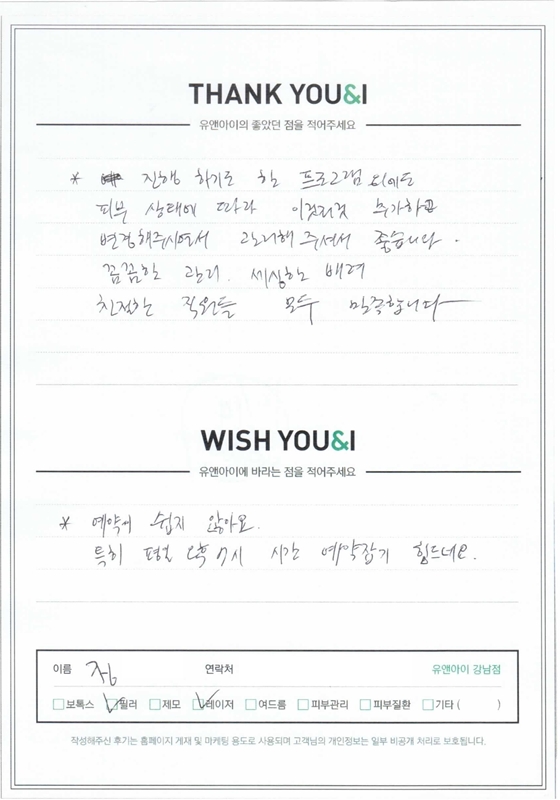 THANK YOU&I
유앤아이의 좋았던 점을 적어주세요
* 진행 하기로 한 프로그램 외에도
피부 상태에 따라 이것저것 추가하고
변경해주시면서 관리해 주셔서 좋습니다.
꼼꼼한 관리. 세심한 배려
친절한 직원들 모두 만족합니다
WISH YOU&I
유앤아이에 바라는 점을 적어주세요
* 예약이 쉽지 않아요.
특히 평일 오후 7시 시간 예약잡기 힘드네요.
이름 연락처 유앤아이 강남점
보톡스 필러 제모 레이저 여드름 피부관리 피부질환 기타 ( )
작성해주신 후기는 홈페이지 게재 및 마케팅 용도로 사용되며 고객님의 개인정보는 일부 비공개 처리로 보호됩니다.